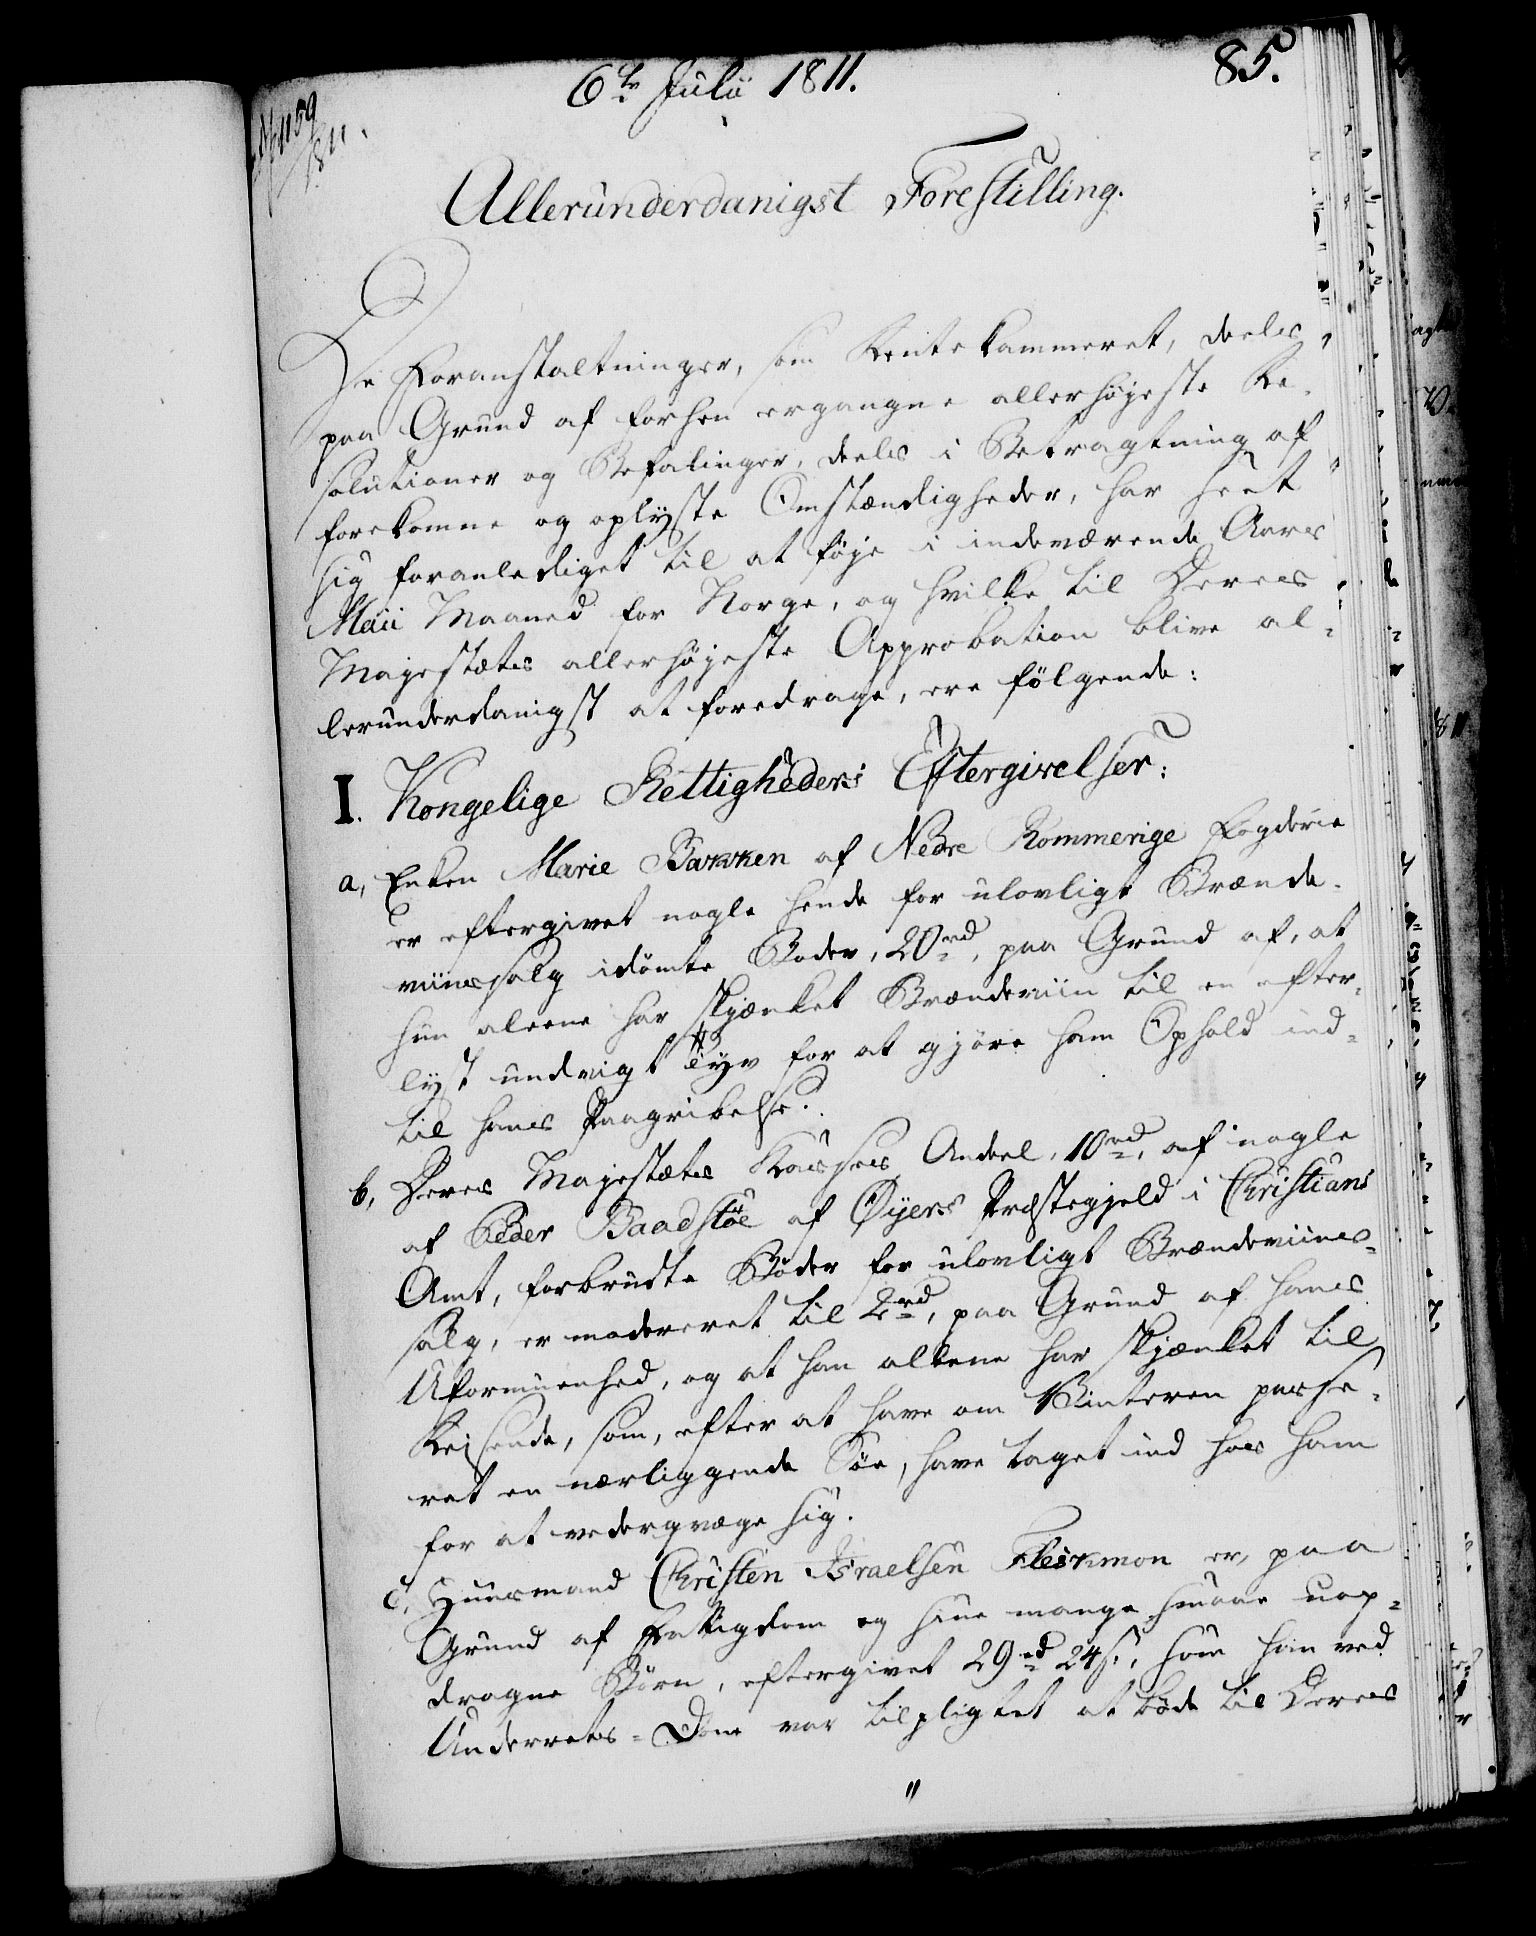 6te Julii 1811.
85.
No 1159
1811.
Allerunderdanigst Forestilling.
De Foranstaltninger, som Rentekammeret, deels
paa Grund af forhen ergangne allerhøjeste Re-
solutioner og Befalinger, deels i Betragtning af
forekomne og oplyste Omstændigheder, har seet
sig foranlediget til at føje i indeværende Aars
Maii Maaned for Norge, og hvilke til Deres
Majestæts allerhøjeste Approbation blive al-
lerunderdanigst at foredrage, ere følgende:
I. Kongelige Rettigheders Eftergivelser:
a, Enken Marie Bakken af Nedre Rommerige Fogderie
er eftergivet nogle hende for ulovligt Brænde-
viinssalg idømte Bøder, 20rd, paa Grund af, at
hun aleene har skjænket Brændeviin til en efter-
lyst undvigt Tyv for at gjøre ham Ophold ind-
til hans Paagribelse.
b, Deres Majestæts Kasses Andeel, 10rd, af nogle
af Peder Baadstøe af Øyers Præstegjeld i Christians
Amt, forbrudte Bøder for ulovligt Brændeviins-
salg, er modereret til 2rd, paa Grund af hans
Uformuenhed, og at han alleene har skjænket til
Rejsende, som, efter at have om Vinteren passe-
ret en nærliggende Søe, have taget ind hos ham
for at vederqvæge sig.
c, Huusmand Christen Israelsen Fleskmon er, paa
Grund af Fattigdom og hans mange smaae uop-
dragne Børn, eftergivet 29rd 24s., som han ved
Underrets-Dom var tilpligtet at bøde til Deres
"